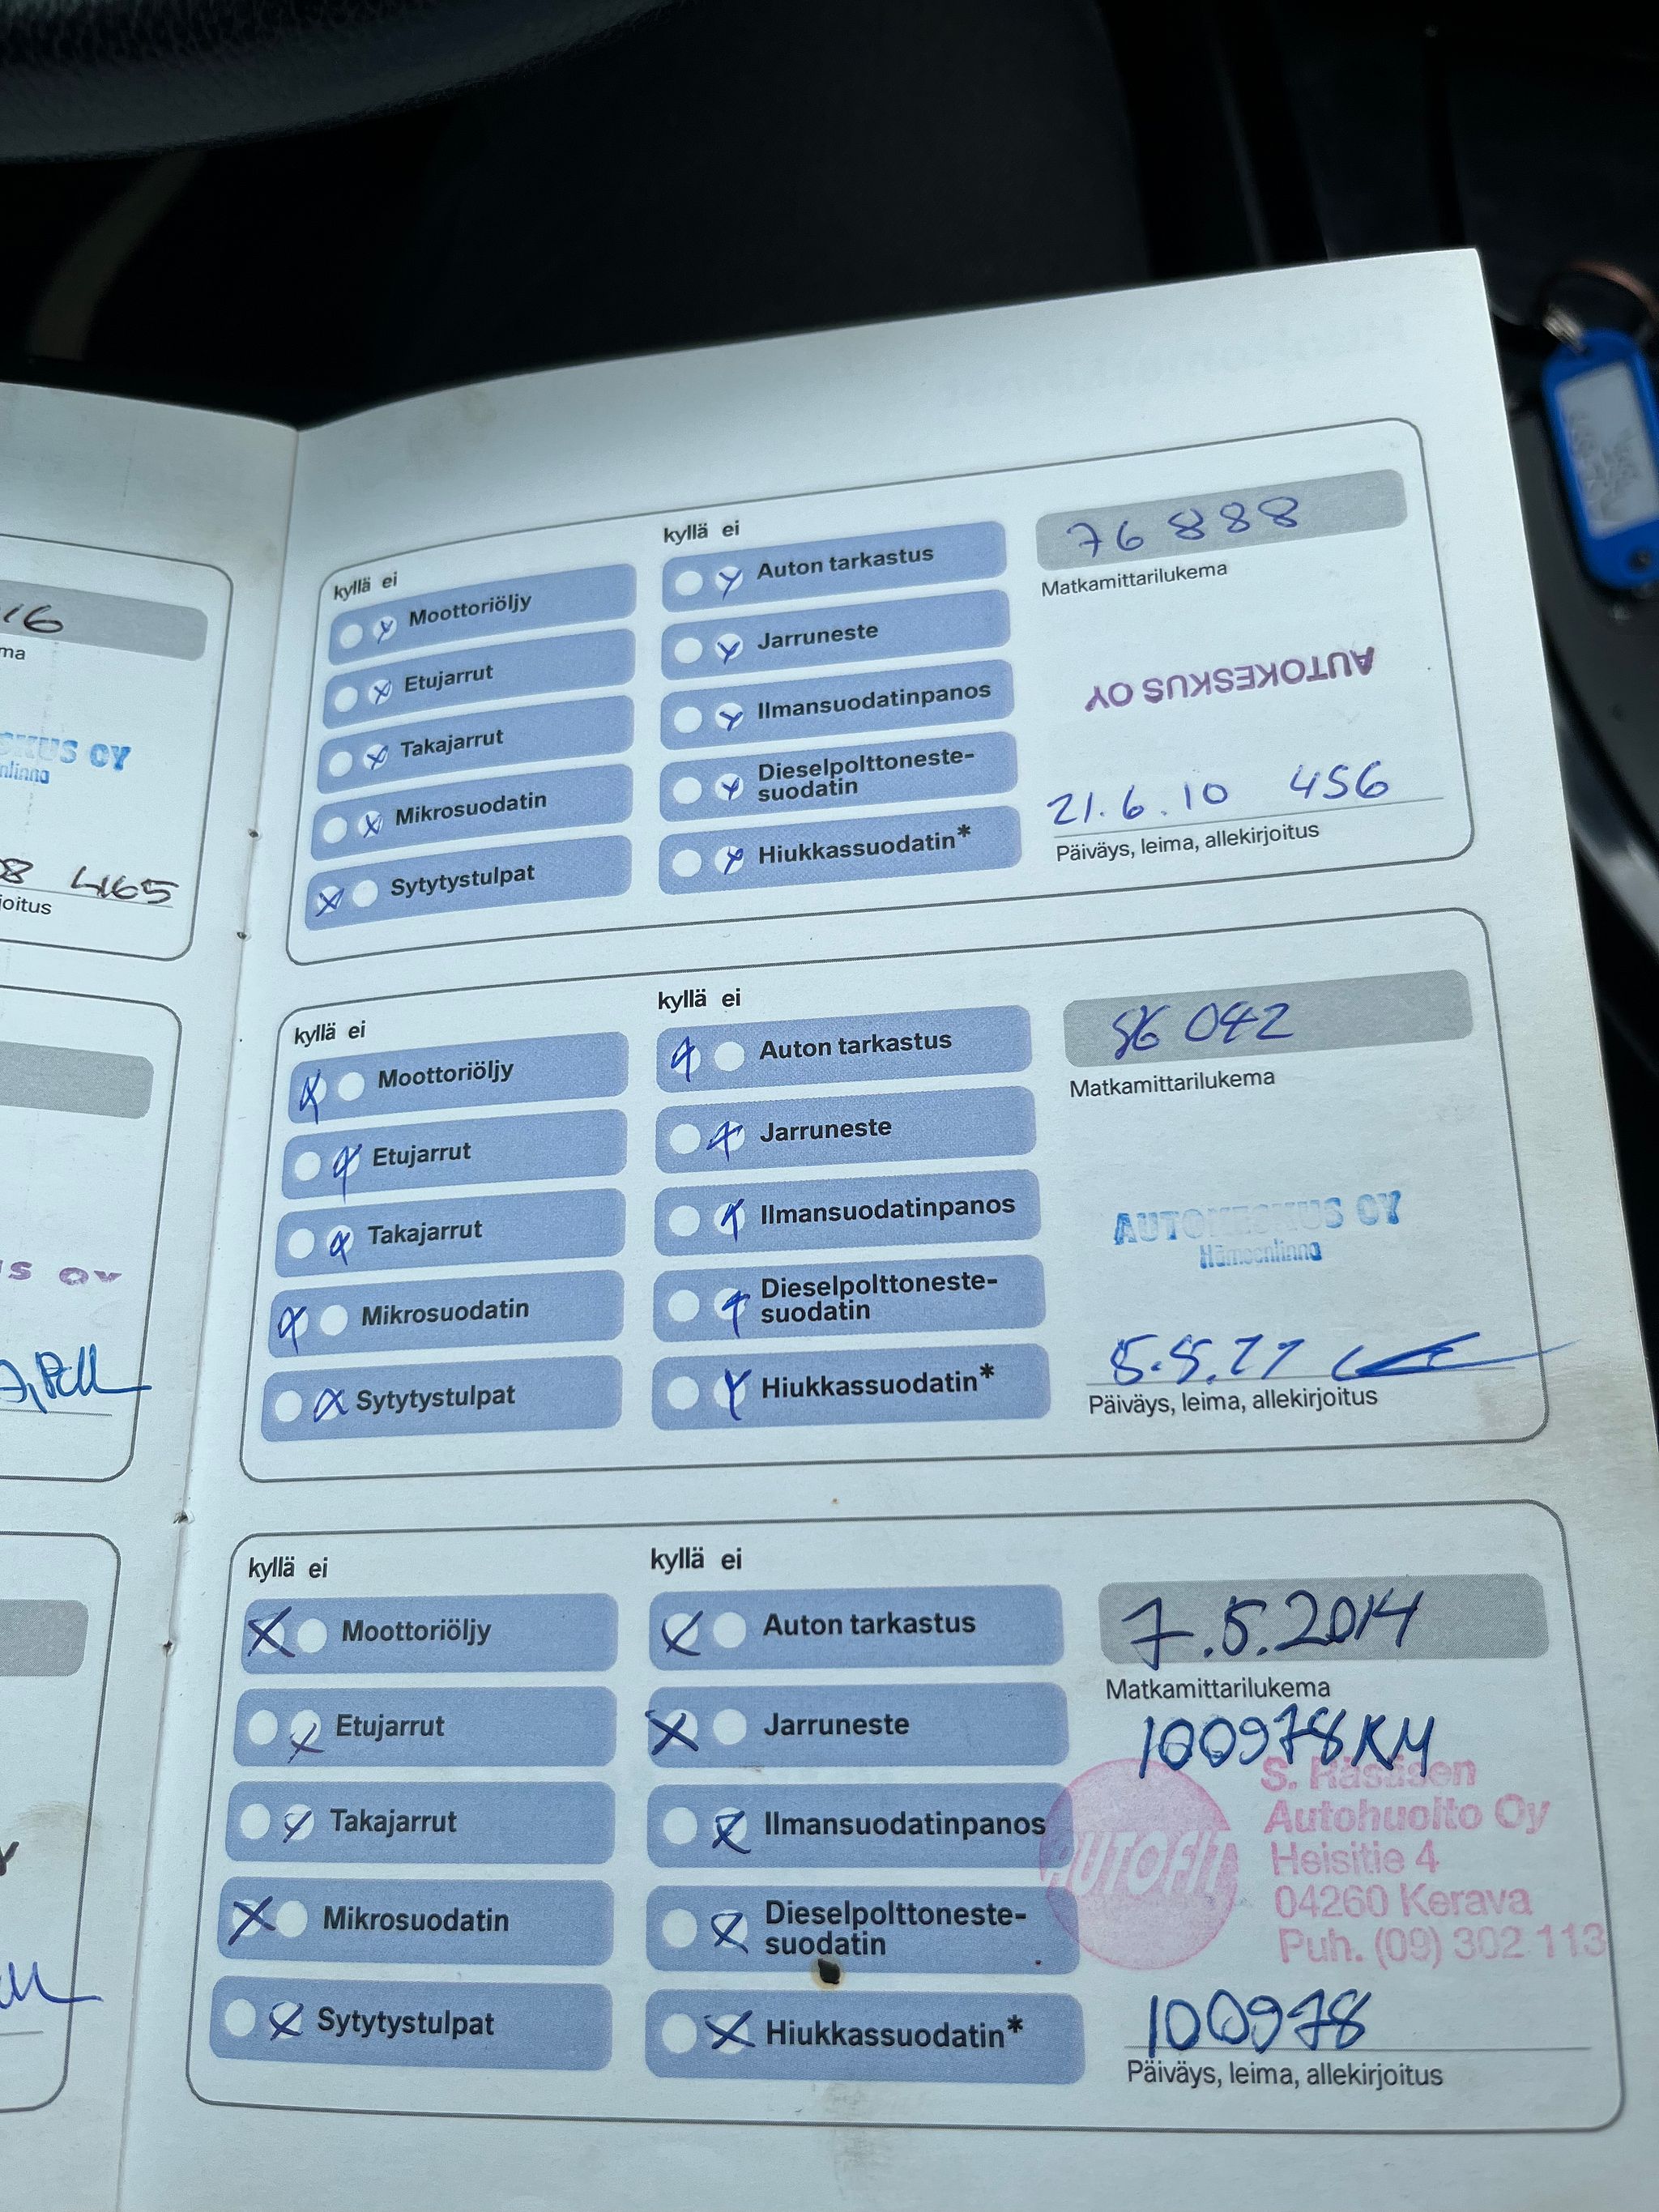 16
ma
SKUS OY
nlinna
8 4165
oitus
S OY
kyllä ei
Moottoriöljy
Etujarrut
Takajarrut
Mikrosuodatin
Sytytystulpat
kyllä ei
Auton tarkastus
Jarruneste
Ilmansuodatinpanos
Dieselpolttoneste-
suodatin
Hiukkassuodatin*
76 888
Matkamittarilukema
AUTOKESKUS OY
21.6.10 456
Päiväys, leima, allekirjoitus
kyllä ei
Moottoriöljy
Etujarrut
Takajarrut
Mikrosuodatin
Sytytystulpat
kyllä ei
Auton tarkastus
Jarruneste
Ilmansuodatinpanos
Dieselpolttoneste-
suodatin
Hiukkassuodatin*
86 042
Matkamittarilukema
AUTOKESKUS OY
Hämeenlinna
5.5.11
Päiväys, leima, allekirjoitus
kyllä ei
Moottoriöljy
Etujarrut
Takajarrut
Mikrosuodatin
Sytytystulpat
kyllä ei
Auton tarkastus
Jarruneste
Ilmansuodatinpanos
Dieselpolttoneste-
suodatin
Hiukkassuodatin*
7.5.2014
Matkamittarilukema
100978KM
AUTOFIT
S. Räsäsen
Autohuolto Oy
Heisitie 4
04260 Kerava
Puh. (09) 302 113
100978
Päiväys, leima, allekirjoitus